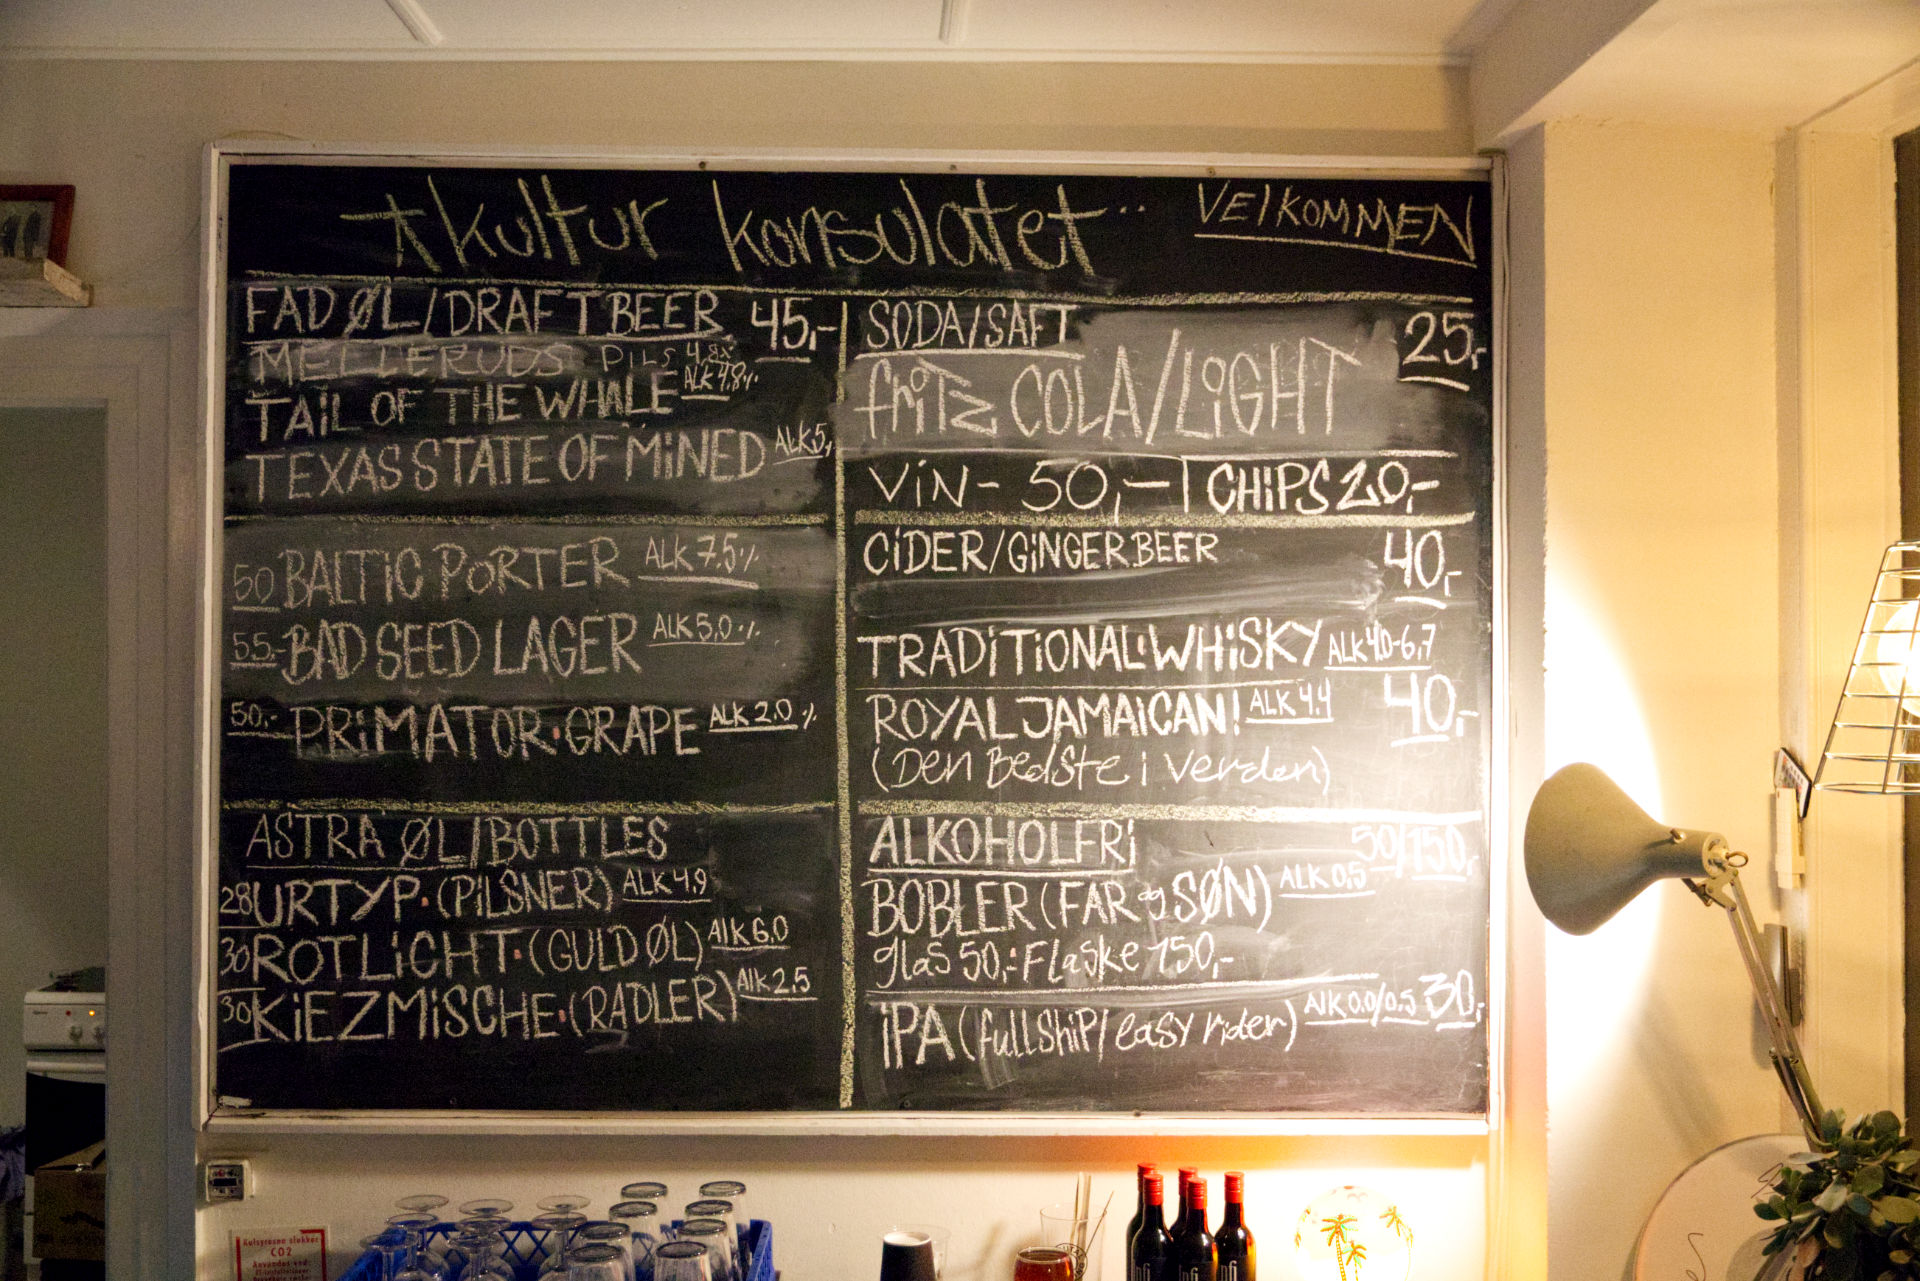 kultur konsulatet
VELKOMMEN
FAD ØL/DRAFT BEER 45,-
MELLERUDS PILS 4,8%
TAIL OF THE WHALE ALK 4.8%
TEXAS STATE OF MINED ALK 5,
50 BALTIC PORTER ALK 7.5%
55,- BAD SEED LAGER ALK 5,0%
50,- PRIMATOR·GRAPE ALK 2.0%
ASTRA ØL/BOTTLES
28 URTYP·(PILSNER) ALK 4.9
30 ROTLICHT·(GULD ØL) Alk 6,0
30 KIEZMISCHE·(RADLER) Alk 2,5
SODA/SAFT 25,-
fritz COLA/LIGHT
VIN- 50,- CHIPS 20,-
CIDER/GINGERBEER 40,-
TRADITIONAL·WHISKY ALK 4.0-6,7
ROYAL JAMAICAN! ALK 4.4 40,-
(Den Bedste i verden)
ALKOHOLFRI 50/150,-
BOBLER (FAR og SØN) ALK 0,5
glas 50,- Flaske 150,-
IPA (fullship/easy rider) Alk 0.0/0.5 30,-
Kulsyresne slukker
CO2
Anvendes ved: